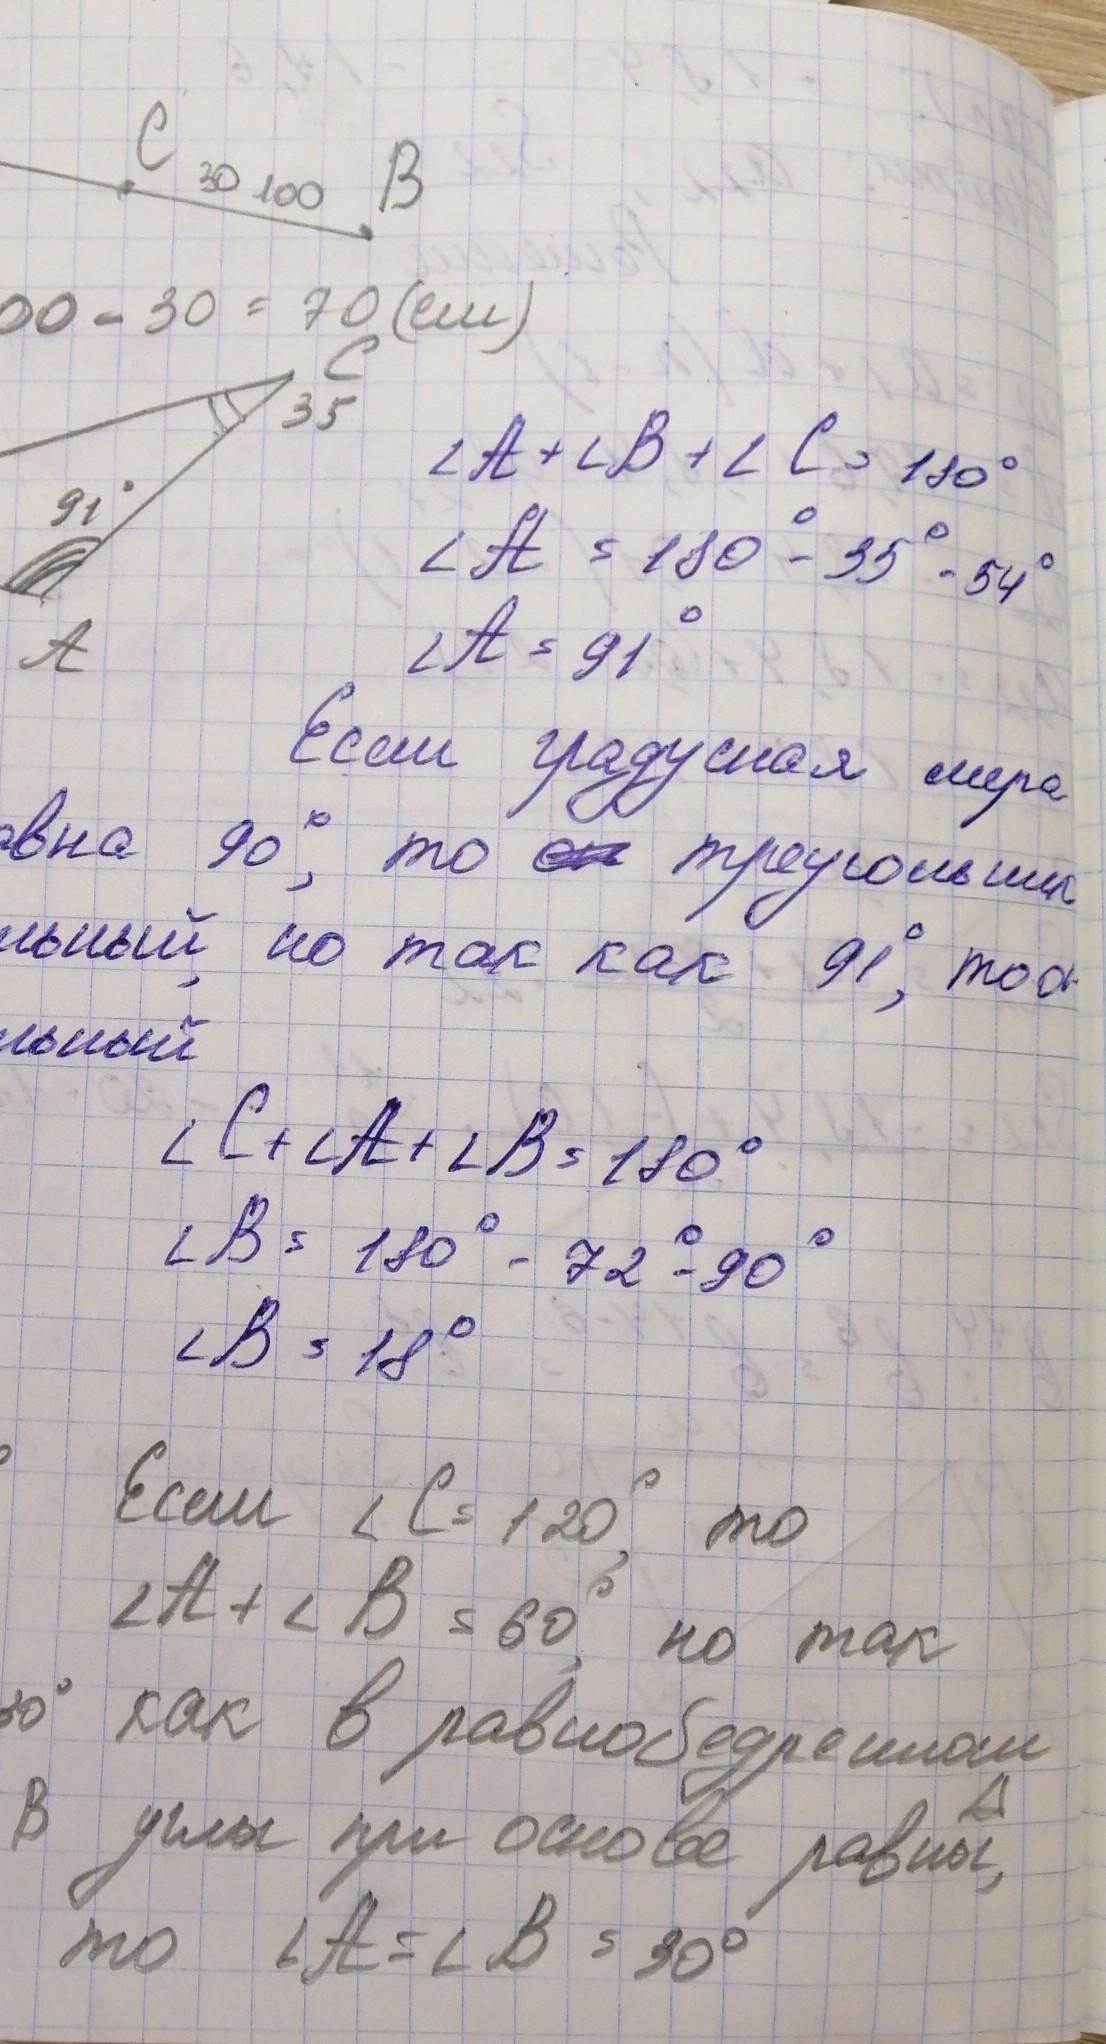 C
30 100 B
00 - 30 = 70 (см)
C
35
91°
A
∠A + ∠B + ∠C = 180°
∠A = 180° - 35° - 54°
∠A = 91°
Если градусная мера
авна 90°, то треугольник
льный, но так как 91°, то он
льный
∠C + ∠A + ∠B = 180°
∠B = 180° - 72° - 90°
∠B = 18°
Если ∠C = 120°, то
∠A + ∠B = 60°, но так
30° как в равнобедренном Δ
B углы при основе равны,
то ∠A = ∠B = 30°